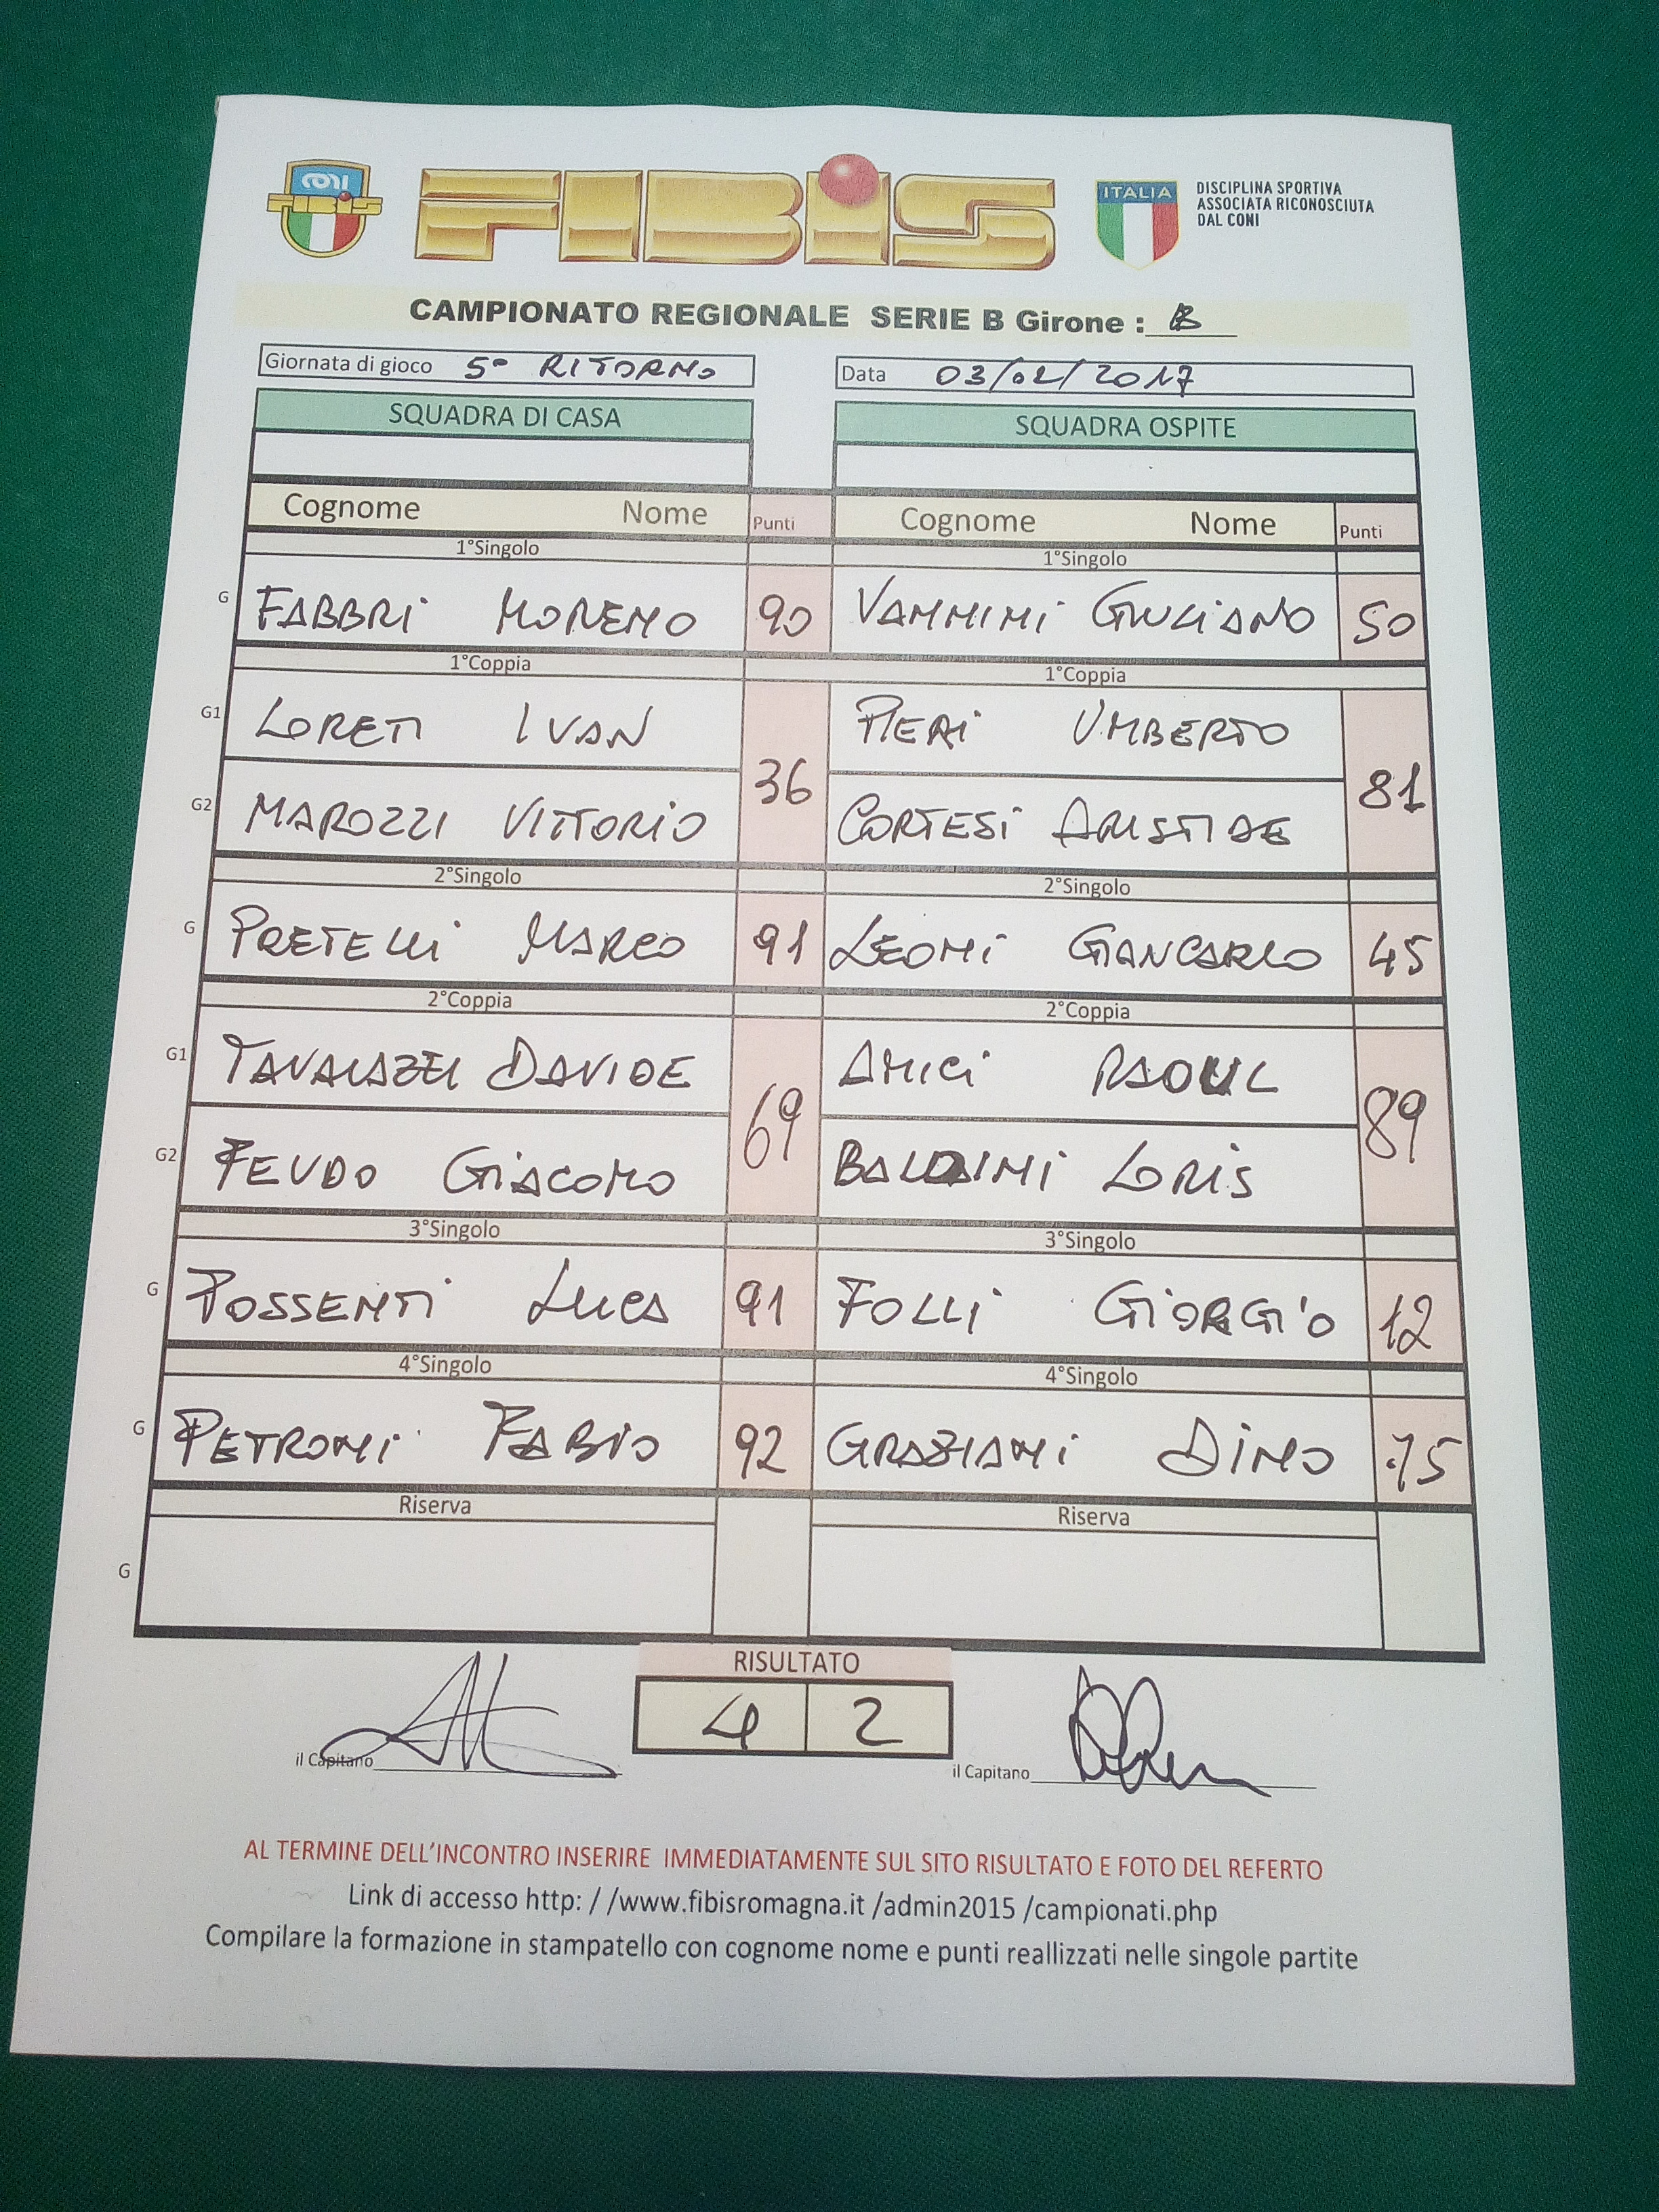 CONI
FIBIS
FIBIS
ITALIA
DISCIPLINA SPORTIVA
ASSOCIATA RICONOSCIUTA
DAL CONI
CAMPIONATO REGIONALE SERIE B Girone : B
Giornata di gioco 5° RITORNO Data 03/02/2017
SQUADRA DI CASA SQUADRA OSPITE
Cognome Nome Punti Cognome Nome Punti
1°Singolo 1°Singolo
G FABBRI MORENO 90 VANNINI GIULIANO 50
1°Coppia 1°Coppia
G1 LORETI IVAN PIERI UMBERTO
36 81
G2 MAROZZI VITTORIO CORTESI ARISTIDE
2°Singolo 2°Singolo
G PRETELLI MARCO 91 LEONI GIANCARLO 45
2°Coppia 2°Coppia
G1 TAVALAZZI DAVIDE AMICI RAOUL
69 89
G2 FEUDO GIACOMO BALDINI LORIS
3°Singolo 3°Singolo
G POSSENTI LUCA 91 FOLLI GIORGIO 12
4°Singolo 4°Singolo
G PETRONI FABIO 92 GRAZIANI DINO 75
Riserva Riserva
G
RISULTATO
4 2
il Capitano il Capitano
AL TERMINE DELL'INCONTRO INSERIRE IMMEDIATAMENTE SUL SITO RISULTATO E FOTO DEL REFERTO
Link di accesso http: / /www.fibisromagna.it /admin2015 /campionati.php
Compilare la formazione in stampatello con cognome nome e punti reallizzati nelle singole partite